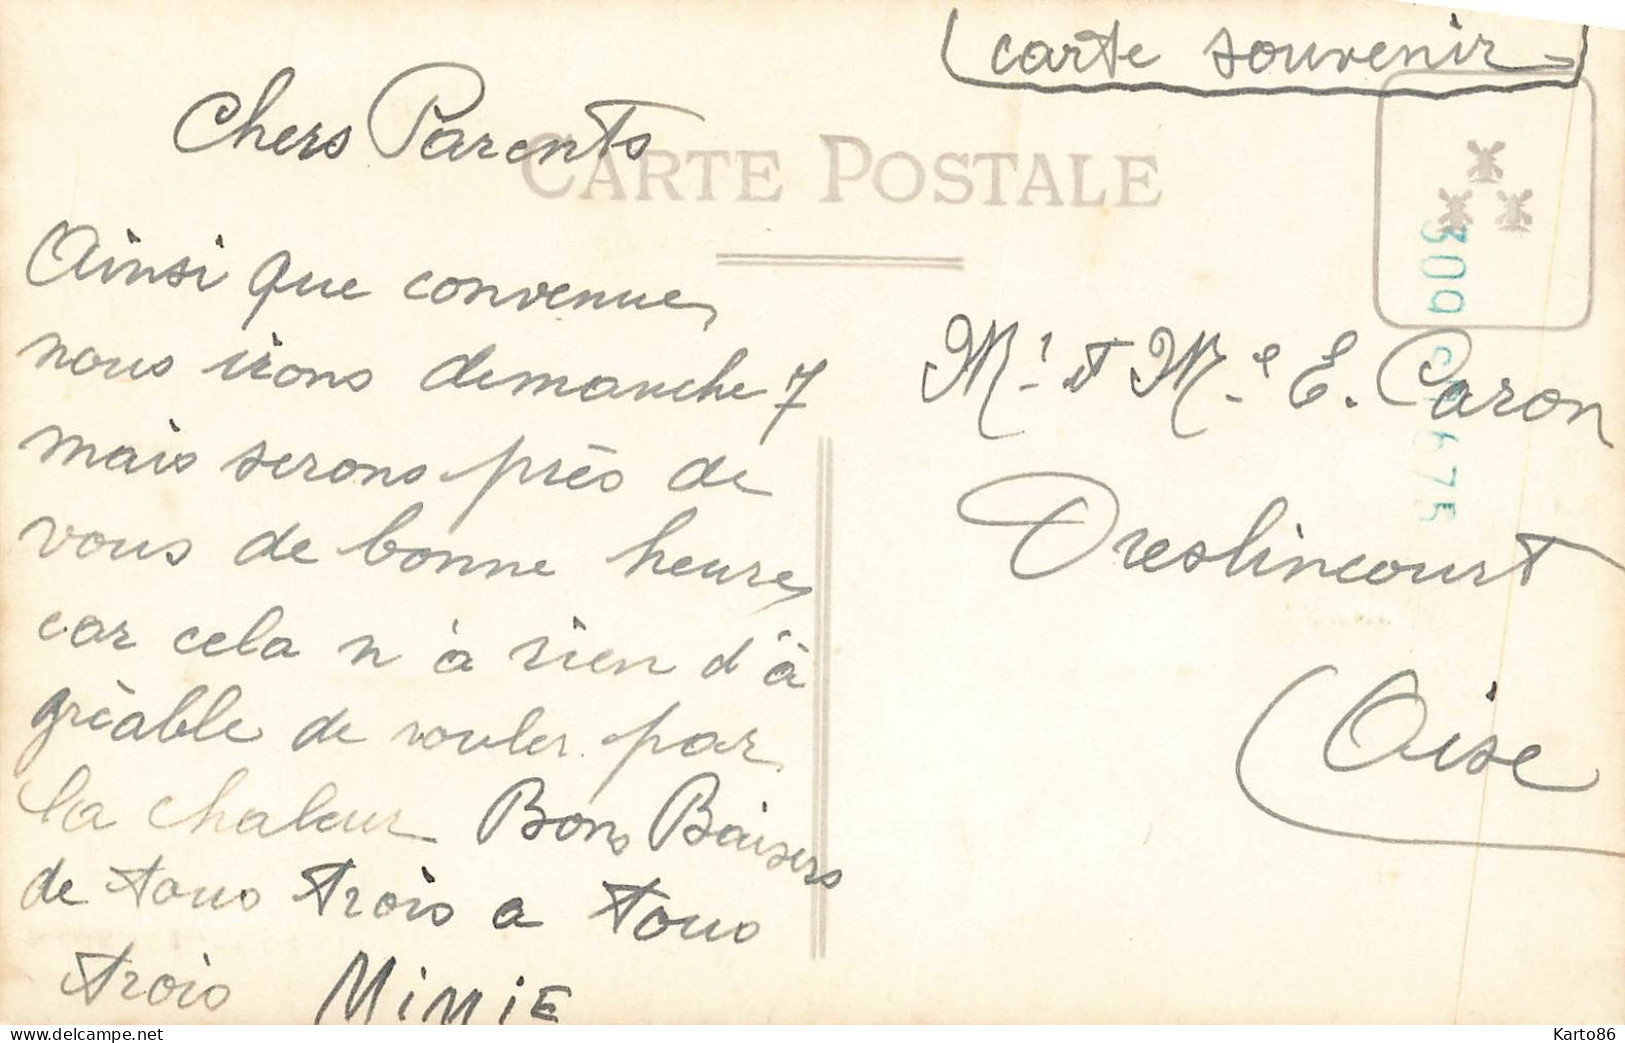 (carte souvenir)
Chers Parents
CARTE POSTALE
Ainsi que convenue,
nous irons demanche 7
mais serons près de
vous de bonne heure,
car cela n'à rien d'à
grèable de rouler par
la chaleur Bons Baisers
de tous trois a tous
trois MiMiE
Mr. et Me. E. Caron
Dreslincourt
Oise
delcampe.net
Karto86